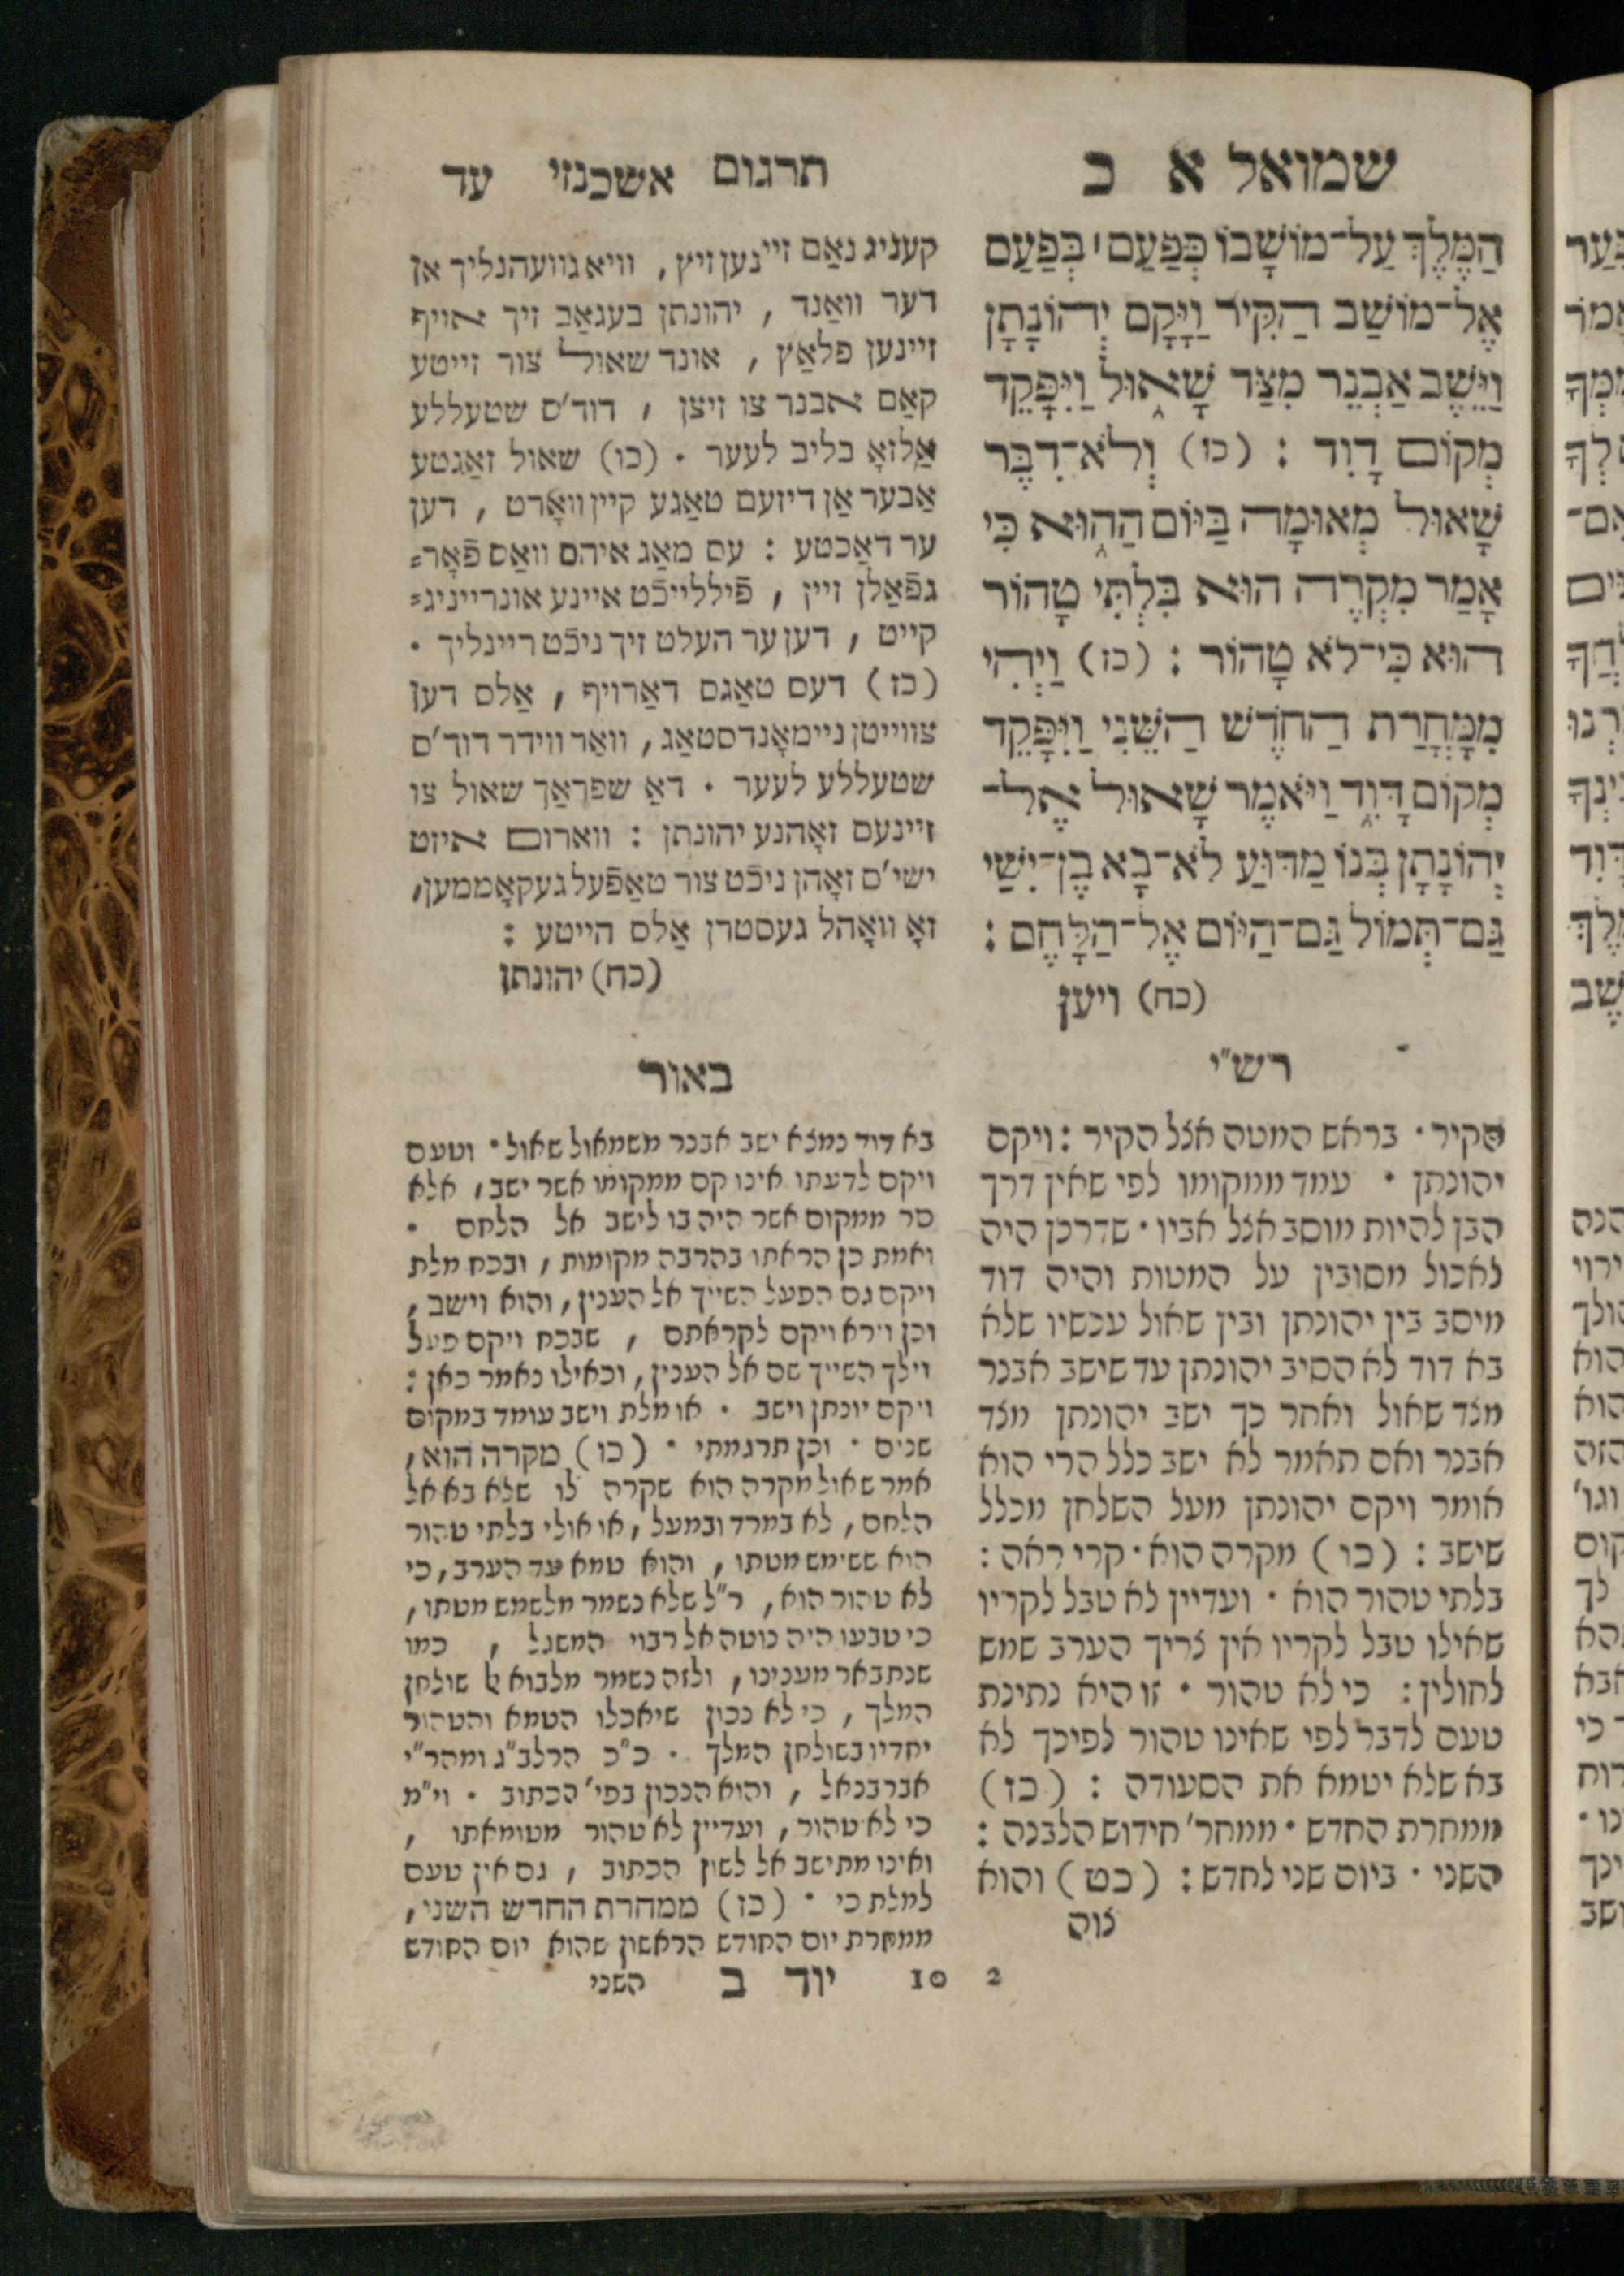 שמואל א כ
הַמֶּלֶךְ עַל־מוֹשָׁבוֹ כְּפַעַם ׀ בְּפַעַם
אֶל־מוֹשַׁב הַקִּיר וַיָּקָם יְהוֹנָתָן
וַיֵּשֶׁב אַבְנֵר מִצַּד שָׁאוּל וַיִּפָּקֵד
מְקוֹם דָּוִד : (כו) וְלֹא־דִבֶּר
שָׁאוּל מְאוּמָה בַּיּוֹם הַהוּא כִּי
אָמַר מִקְרֶה הוּא בִּלְתִּי טָהוֹר
הוּא כִּי־לֹא טָהוֹר : (כז) וַיְהִי
מִמָּחֳרַת הַחֹדֶשׁ הַשֵּׁנִי וַיִּפָּקֵד
מְקוֹם דָּוִד וַיֹּאמֶר שָׁאוּל אֶל־
יְהוֹנָתָן בְּנוֹ מַדּוּעַ לֹא־בָא בֶן־יִשַׁי
גַּם־תְּמוֹל גַּם־הַיּוֹם אֶל־הַלָּחֶם :
(כח) ויען
תרגום אשכנזי עד
קעניג נאַם זיינען זיץ , וויא גוועהנליך אן
דער וואַנד , יהונתן בעגאַב זיך אויף
זיינען פלאַץ , אונד שאול צור זייטע
קאַם אבנר צו זיצן , דוד'ס שטעללע
אַלזאָ בליב לעער . (כו) שאול זאַגטע
אַבער אַן דיזעם טאַגע קיין וואָרט , דען
ער דאַכטע : עס מאַג איהם וואַס פֿאָר=
גפֿאַלן זיין , פֿיללייכֿט איינע אונריינג=
קייט , דען ער העלט זיך ניכֿט ריינליך .
(כז) דעס טאַגס דאַרויף , אַלס דען
צווייטן ניימאָנדסטאַג , וואַר ווידר דוד'ס
שטעללע לעער . דאַ שפראַך שאול צו
זיינעם זאָהנע יהונתן : ווארום איזט
ישי'ס זאָהן ניכֿט צור טאַפֿעל געקאָממען,
זאָ וואָהל געסטרן אַלס הייטע :
(כח) יהונתן
רש"י
הקיר . בראש המטה אצל הקיר : ויקם
יהונתן . עמד ממקומו לפי שאין דרך
הבן להיות מוסב אצל אביו . שדרכן היה
לאכול מסובין על המטות והיה דוד
מיסב בין יהונתן ובין שאול עכשיו שלא
בא דוד לא הסיב יהונתן עד שישב אבנר
מצד שאול ואחר כך ישב יהונתן מצד
אבנר ואם תאמר לא ישב כלל הרי הוא
אומר ויקם יהונתן מעל השלחן מכלל
שישב : (כו) מקרה הוא . קרי ראה :
בלתי טהור הוא . ועדיין לא טבל לקריו
שאילו טבל לקריו אין צריך הערב שמש
לחולין : כי לא טהור . זו היא נתינת
טעם לדבר לפי שאינו טהור לפיכך לא
בא שלא יטמא את הסעודה : (כז)
ממחרת החדש . ממחר' חידוש הלבנה :
השני . ביום שני לחדש : (כט) והוא
צוה
באור
בא דוד כמצא ישב אבנר משמאול שאול . וטעם
ויקם לדעתו אינו קם ממקומו אשר ישב , אלא
סר ממקום אשר היה בו לישב אל הלחם .
ואמת כן הראתו בהרבה מקומות , ובכח מלת
ויקם גם הפעל השייך אל הענין , והוא וישב ,
וכן וירא ויקם לקראתם , שבכח ויקם פעל
וילך השייך שם אל הענין , וכאילו נאמר כאן :
ויקם יונתן וישב . או מלת וישב עומד במקום
שנים . וכן תרגמתי . (כו) מקרה הוא ,
אמר שאול מקרה הוא שקרה לו שלא בא אל
הלחם , לא במרד ובמעל , או אולי בלתי טהור
הוא ששימש מטתו , והוא טמא עד הערב , כי
לא טהור הוא , ר"ל שלא נשמר מלשמש מטתו ,
כי טבעו היה נוטה אל רבוי המשגל , כמו
שנתבאר מענינו , ולזה נשמר מלבוא אל שולחן
המלך , כי לא נכון שיאכלו הטמא והטהור
יחדיו בשולחן המלך . כ"כ הרלב"ג ומהר"י
אברבנאל , והוא הנכון בפי' הכתוב . וי"מ
כי לא טהור , ועדיין לא טהור מטומאתו ,
ואינו מתישב אל לשון הכתוב , גם אין טעם
למלת כי . (כז) ממחרת החדש השני ,
ממחרת יום החודש הראשון שהוא יום החודש
השני
יוד ב 10 2